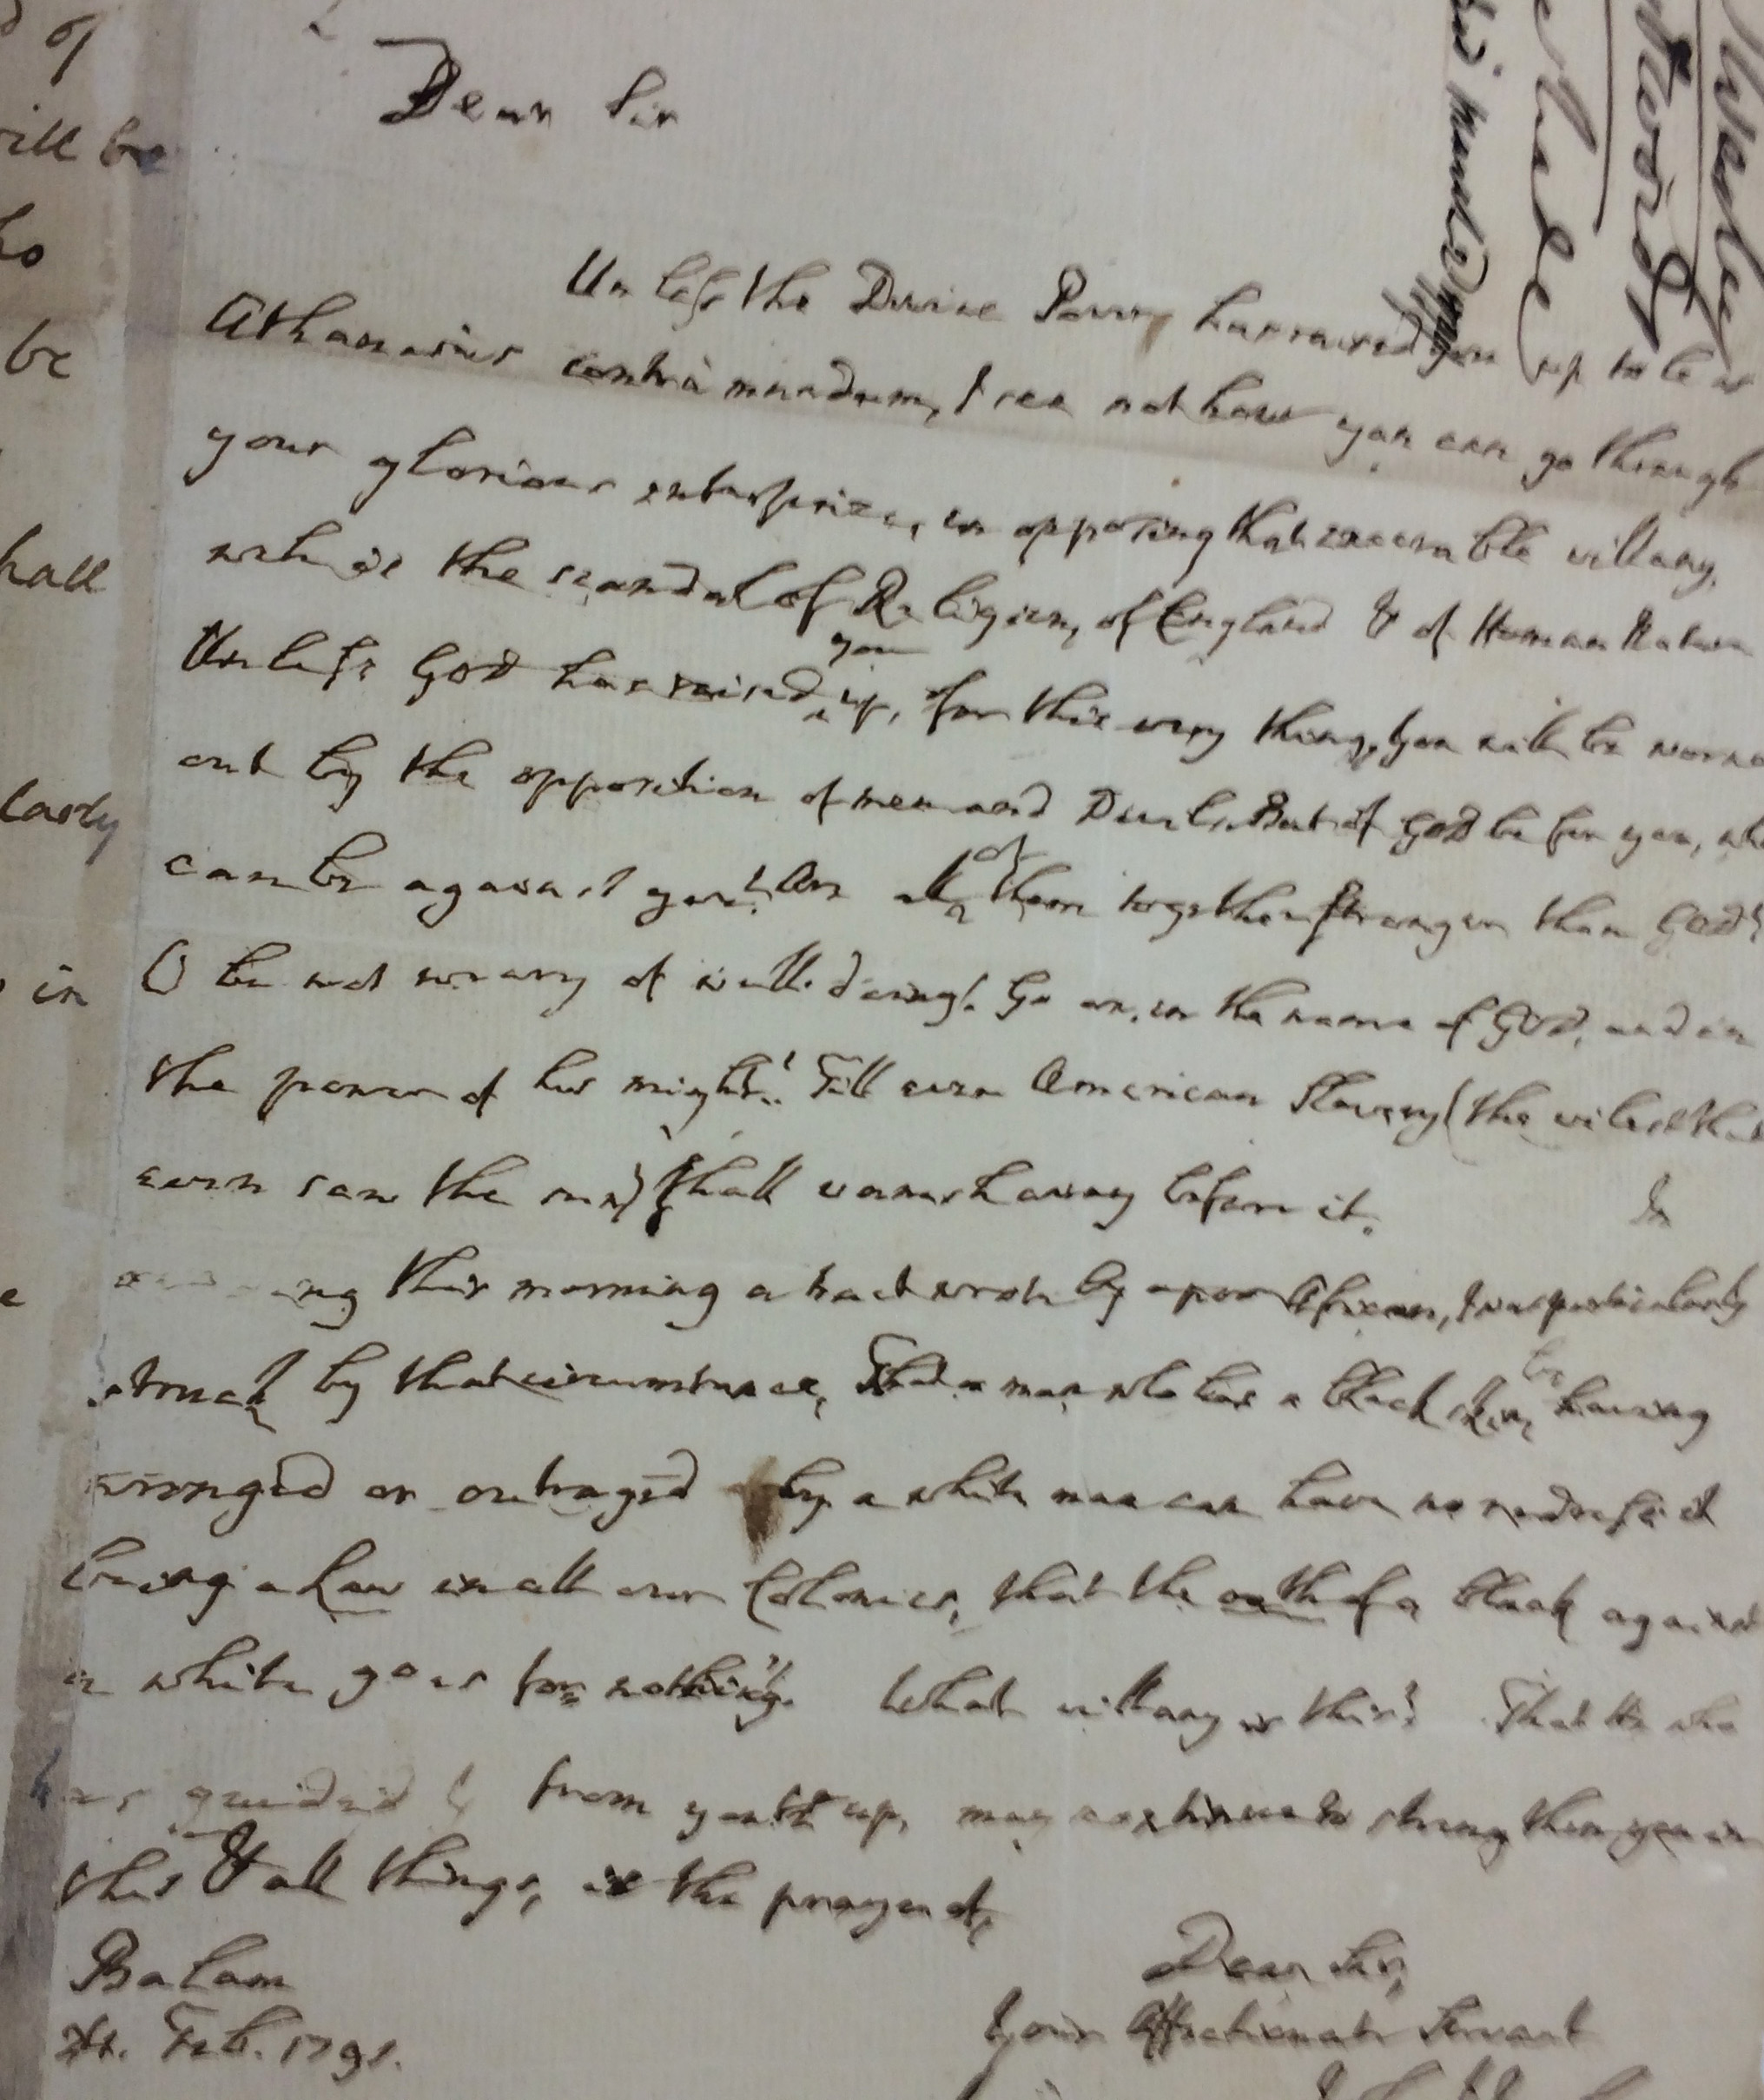 of
will be
be
hall
larly
in
Dear Sir
Unless the Divine Power has raised you up to be as
Athanasius contra mundum, I see not how you can go through
your glorious enterprize, in opposing that execrable villany,
which is the scandal of Religion, of England & of Human Nature
Unless God has raised you up, for this very thing, you will be worne
out by the opposition of men and Devils. But if God be for you, who
can be against you? Are all of them together stronger than God?
O be not weary of well-doing! Go on, in the name of God, and in
the power of his might! Till even American Slavery (the vilest that
ever saw the sun) shall vanish away before it.
In
ing this morning a tract wrote by a poor African, I was particularly
struck by that circumstance, That a man who has a black skin, being
wronged or outraged by a white man can have no redress: it
being a Law in all our Colonies, that the oath of a black against
a white goes for nothing. What villany is this! That He who
has guided from youth up, may continue to strengthen you in
this & all things, is the prayer of,
Dear Sir,
Balam
24. Feb. 1791.
Your Affectionate Servant